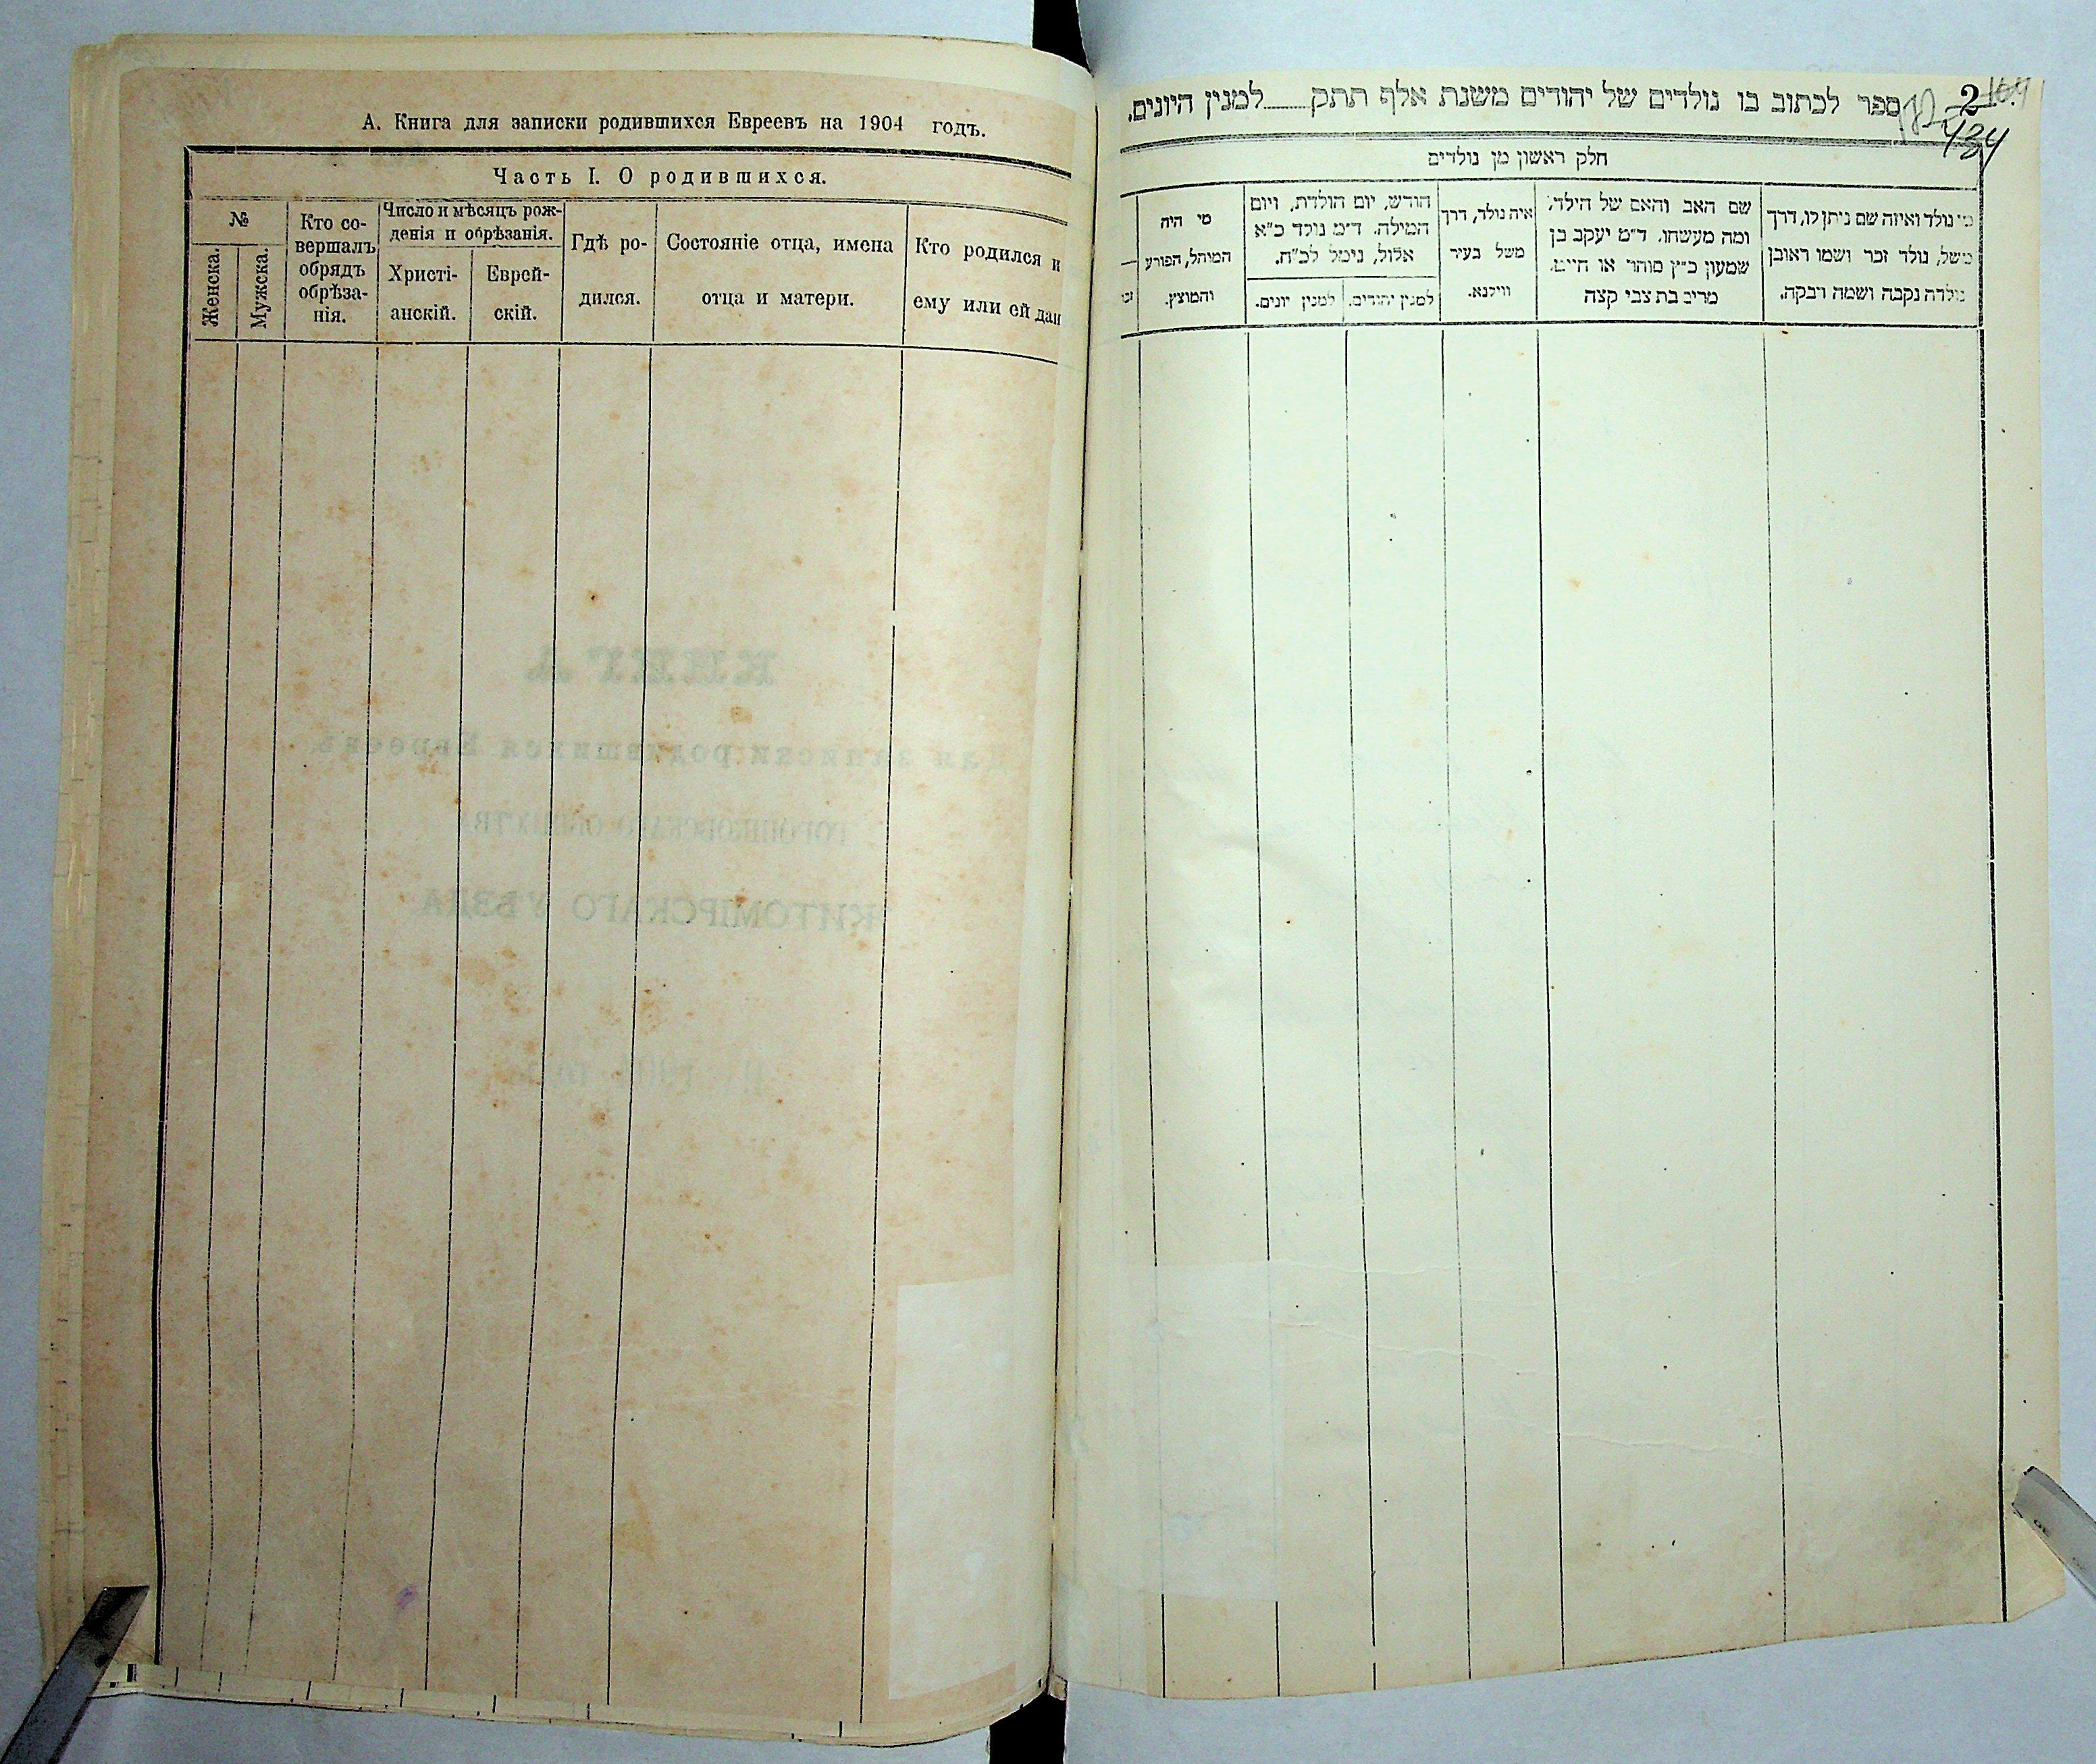 А. Книга для записки родившихся Евреевъ на 1904 годъ.
Часть I. О родившихся.
№
Женска.
Мужска.
Кто со-
вершалъ
обрядъ
обрѣза-
нія.
Число и мѣсяцъ рож-
денія и обрѣзанія.
Христі-
анскій.
Еврей-
скій.
Гдѣ ро-
дился.
Состояніе отца, имена
отца и матери.
Кто родился и
ему или ей дан
КНИГА
для записки родившихся Евреевъ
ЖИТОМІРСКАГО УѢЗДА
2
434
ספר לכתוב בו נולדים של יהודים משנת אלף תתק למנין היונים.
חלק ראשון מן נולדים
מי נולד ואיזה שם ניתן לו, דרך
משל, נולד זכר ושמו ראובן
נולדה נקבה ושמה רבקה.
שם האב והאם של הילד,
ומה מעשהו. ד״מ יעקב בן
שמעון כ״ץ סוחר או חייט.
מרים בת צבי קצה
איה נולד, דרך
משל בעיר
ווילנא.
חודש, יום הולדת, ויום
המילה. ד״מ נולד כ״א
אלול, נימל לכ״ח.
למנין יהודים.
למנין יונים.
מי היה
המוהל, הפורע
והמוצץ.